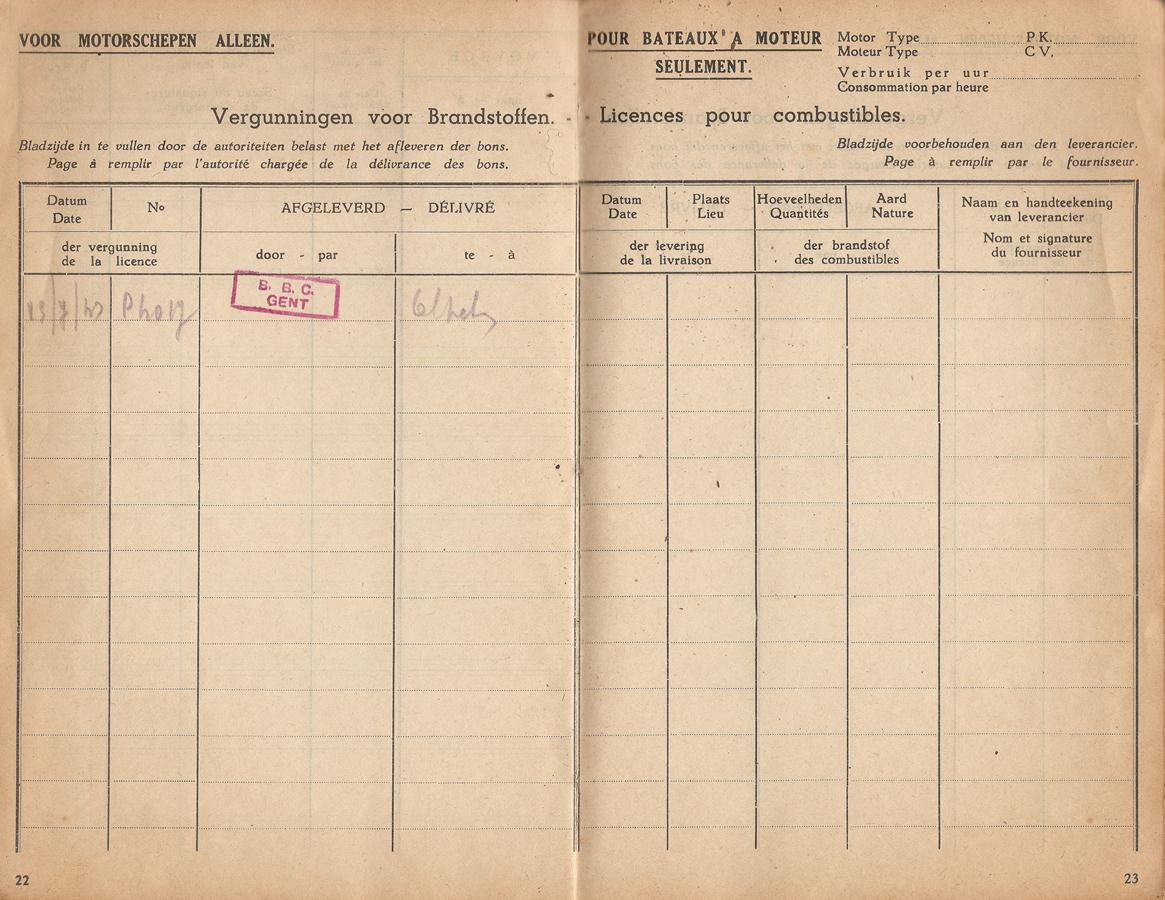 VOOR MOTORSCHEPEN ALLEEN.
Vergunningen voor Brandstoffen. -
Bladzijde in te vullen door de autoriteiten belast met het afleveren der bons.
Page à remplir par l'autorité chargée de la délivrance des bons.
Datum
Date
No
AFGELEVERD — DÉLIVRÉ
der vergunning
de la licence
door - par
te - à
B. B. C.
GENT
22
POUR BATEAUX A MOTEUR
SEULEMENT.
Motor Type P.K.
Moteur Type C V.
Verbruik per uur
Consommation par heure
- Licences pour combustibles.
Bladzijde voorbehouden aan den leverancier.
Page à remplir par le fournisseur.
Datum
Date
Plaats
Lieu
Hoeveelheden
Quantités
Aard
Nature
Naam en handteekening
van leverancier
Nom et signature
du fournisseur
der levering
de la livraison
der brandstof
des combustibles
23